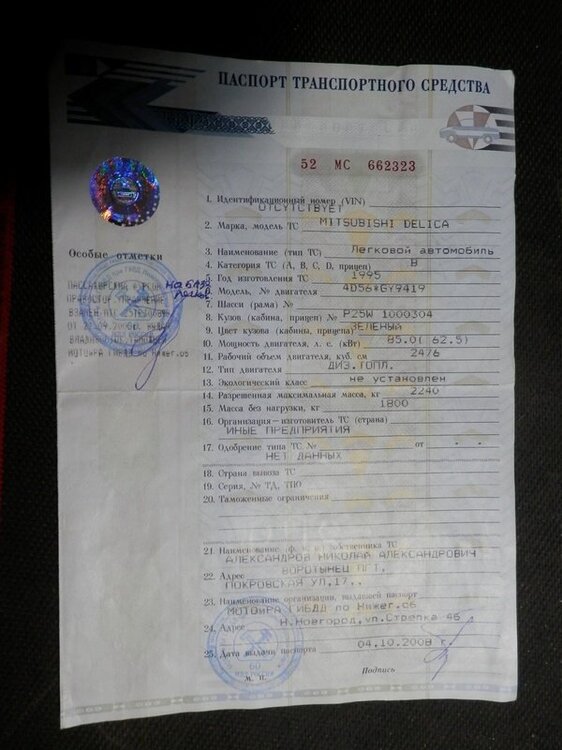 ПАСПОРТ ТРАНСПОРТНОГО СРЕДСТВА
52 МС 662323
1. Идентификационный номер (VIN)
ОТСУТСТВУЕТ
2. Марка, модель ТС MITSUBISHI DELICA
Особые отметки
3. Наименование (тип ТС) Легковой автомобиль
4. Категория ТС (А, В, С, D, прицеп) В
5. Год изготовления ТС 1995
6. Модель, № двигателя 4D56*GY9419
7. Шасси (рама) №
8. Кузов (кабина, прицеп) № P25W 1000304
9. Цвет кузова (кабины, прицепа) ЗЕЛЕНЫЙ
10. Мощность двигателя, л. с. (кВт) 85.0( 62.5)
11. Рабочий объем двигателя, куб. см 2476
12. Тип двигателя ДИЗ.ТОПЛ.
13. Экологический класс не установлен
14. Разрешенная максимальная масса, кг 2240
15. Масса без нагрузки, кг 1800
16. Организация—изготовитель ТС (страна)
ИНЫЕ ПРЕДПРИЯТИЯ
17. Одобрение типа ТС № от
НЕТ ДАННЫХ
18. Страна вывоза ТС
19. Серия, № ТД, ТПО
20. Таможенные ограничения
21. Наименование (ф. и. о.) собственника ТС
АЛЕКСАНДРОВ НИКОЛАЙ АЛЕКСАНДРОВИЧ
22. Адрес ВОРОТЫНЕЦ ПГТ,
ПОКРОВСКАЯ УЛ,17,.
23. Наименование организации, выдавшей паспорт
МОТОиРА ГИБДД по Нижег.об
24. Адрес Н.Новгород,ул.Стрелка 4Б
25. Дата выдачи паспорта 04.10.2008
Подпись
М. П.